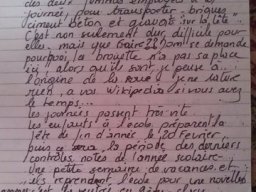 des deux femmes employées à la
journée, pour transporter, briques
ciment béton et gravois sur la tête".
C'est non seulement dur, difficile pour
elles, mais que faire?? On se demande
pourquoi la brouette n'a pas sa place
ici, alors qu'ils sont je pense à
l'origine de la roue ! je ne sais
rien, a voir Wikipedia si vous avez
le temps...
les journées passent très vite
les enfants à l'école préparent la
fête de fin d'année le 20 février
puis ce sera la période des derniers
contrôles notes de l'année scolaire-
Une petite semaine de vacances et
reprendront l'école pour une nouvelle